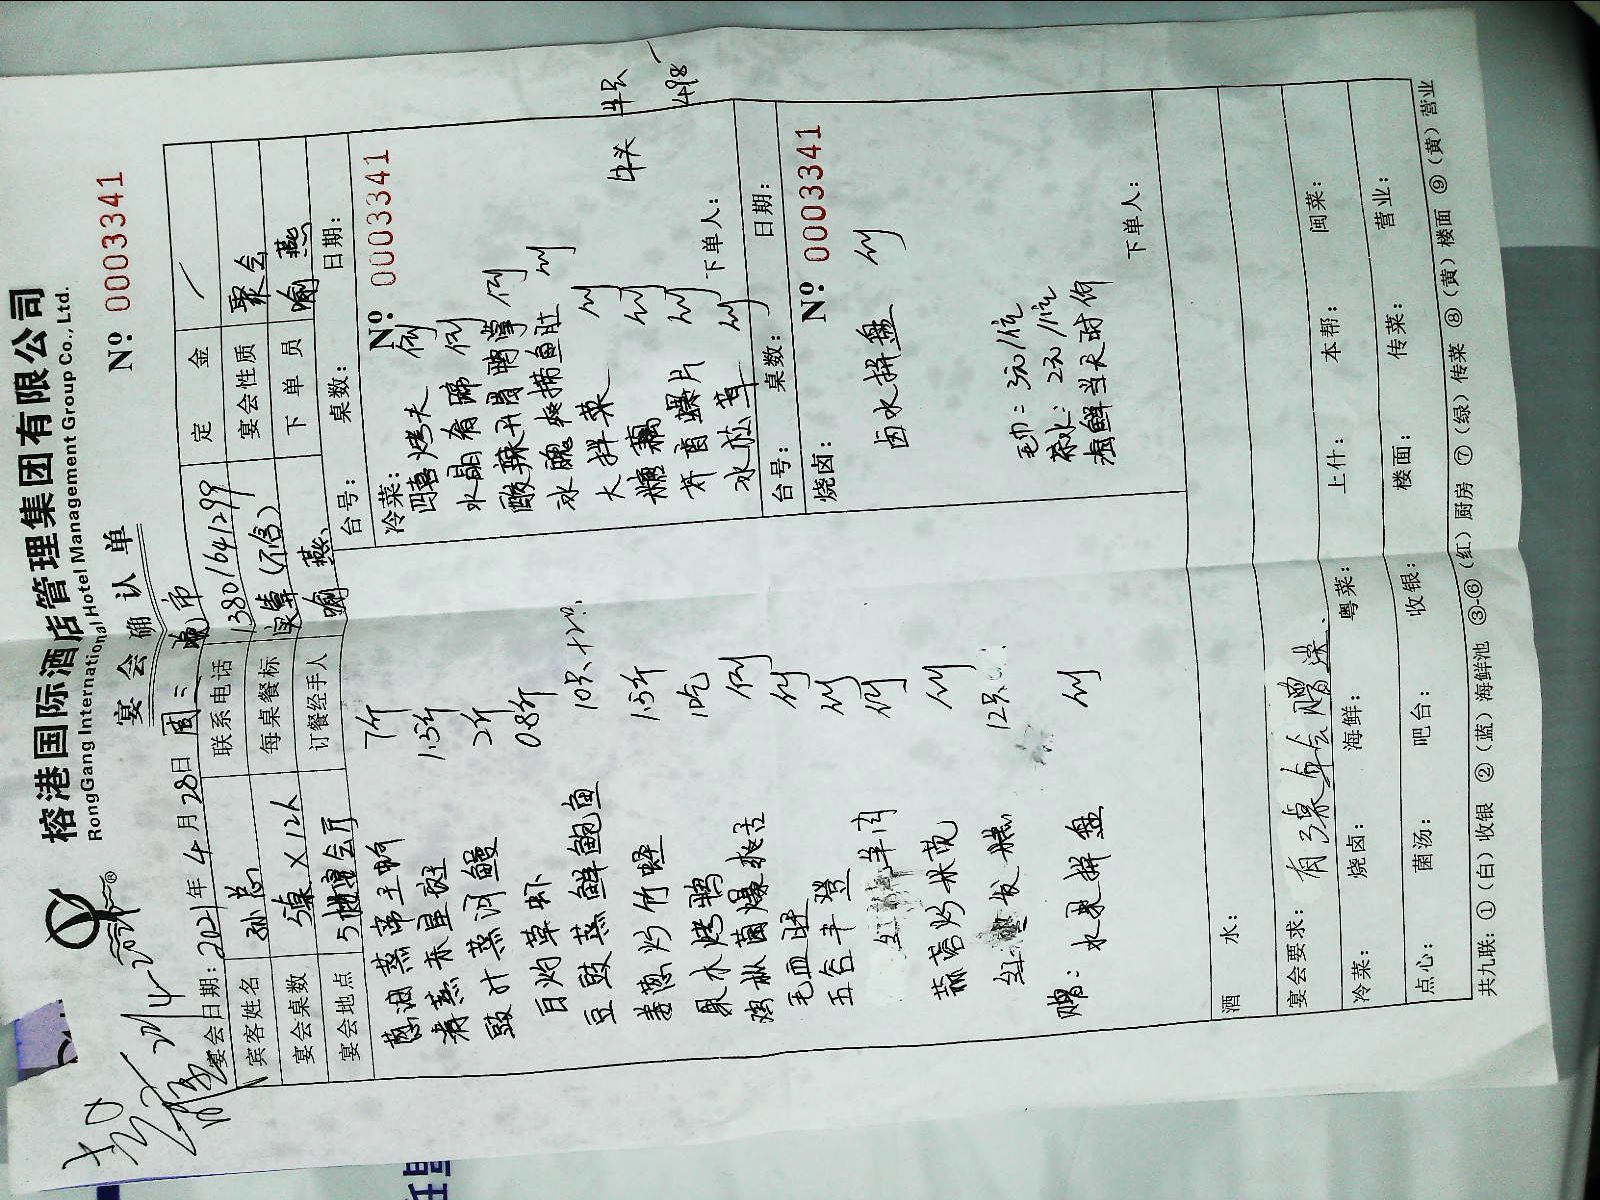 榕港国际酒店管理集团有限公司
RongGang International Hotel Management Group Co., Ltd.
宴会确认单
Nº 0003341
宴会日期：2021年4月28日 周三 晚市
定金
宾客姓名 孙总
联系电话 13801641299
宴会性质 聚会
宴会桌数 3桌×12人
每桌餐标 实算（不含）
下单员 喻燕
宴会地点 5楼宴会厅
订餐经手人 喻燕
台号： 桌数： 日期：
葱油蒸帝王蚌 7斤
清蒸东星斑 1.5斤
豉汁蒸河鳗 2斤
白灼草虾 0.8斤
豆豉蒸鲜鲍鱼 10只+2只
姜葱炒竹蛏 1.5斤
果木烤鸭
鸡枞菌爆爽舌 例
毛血旺 例
五谷丰登 例
羊肉 例
蒜蓉炒米苋 例
红 发糕 12只
赠：水果拼盘 例
冷菜：
Nº 0003341
四喜烤夫 例
水晶肴蹄 例
酸辣开胃鸭掌 例
水腌爽捞鱼肚 例
大拌菜 例
糖藕 例
螺片 例
冰 草 例
下单人：
牛头
牛头
498
台号： 桌数： 日期：
烧卤：
Nº 0003341
卤水拼盘 例
毛巾：3元/位
茶水：2元/位
海鲜当天时价
下单人：
酒水：
宴会要求：
冷菜： 烧卤： 海鲜： 粤菜： 上什： 本帮： 闽菜：
点心： 菌汤： 吧台： 收银： 楼面： 传菜： 营业：
共九联：①（白）收银 ②（蓝）海鲜池 ③-⑥（红）厨房 ⑦（绿）传菜 ⑧（黄）楼面 ⑨（黄）营业